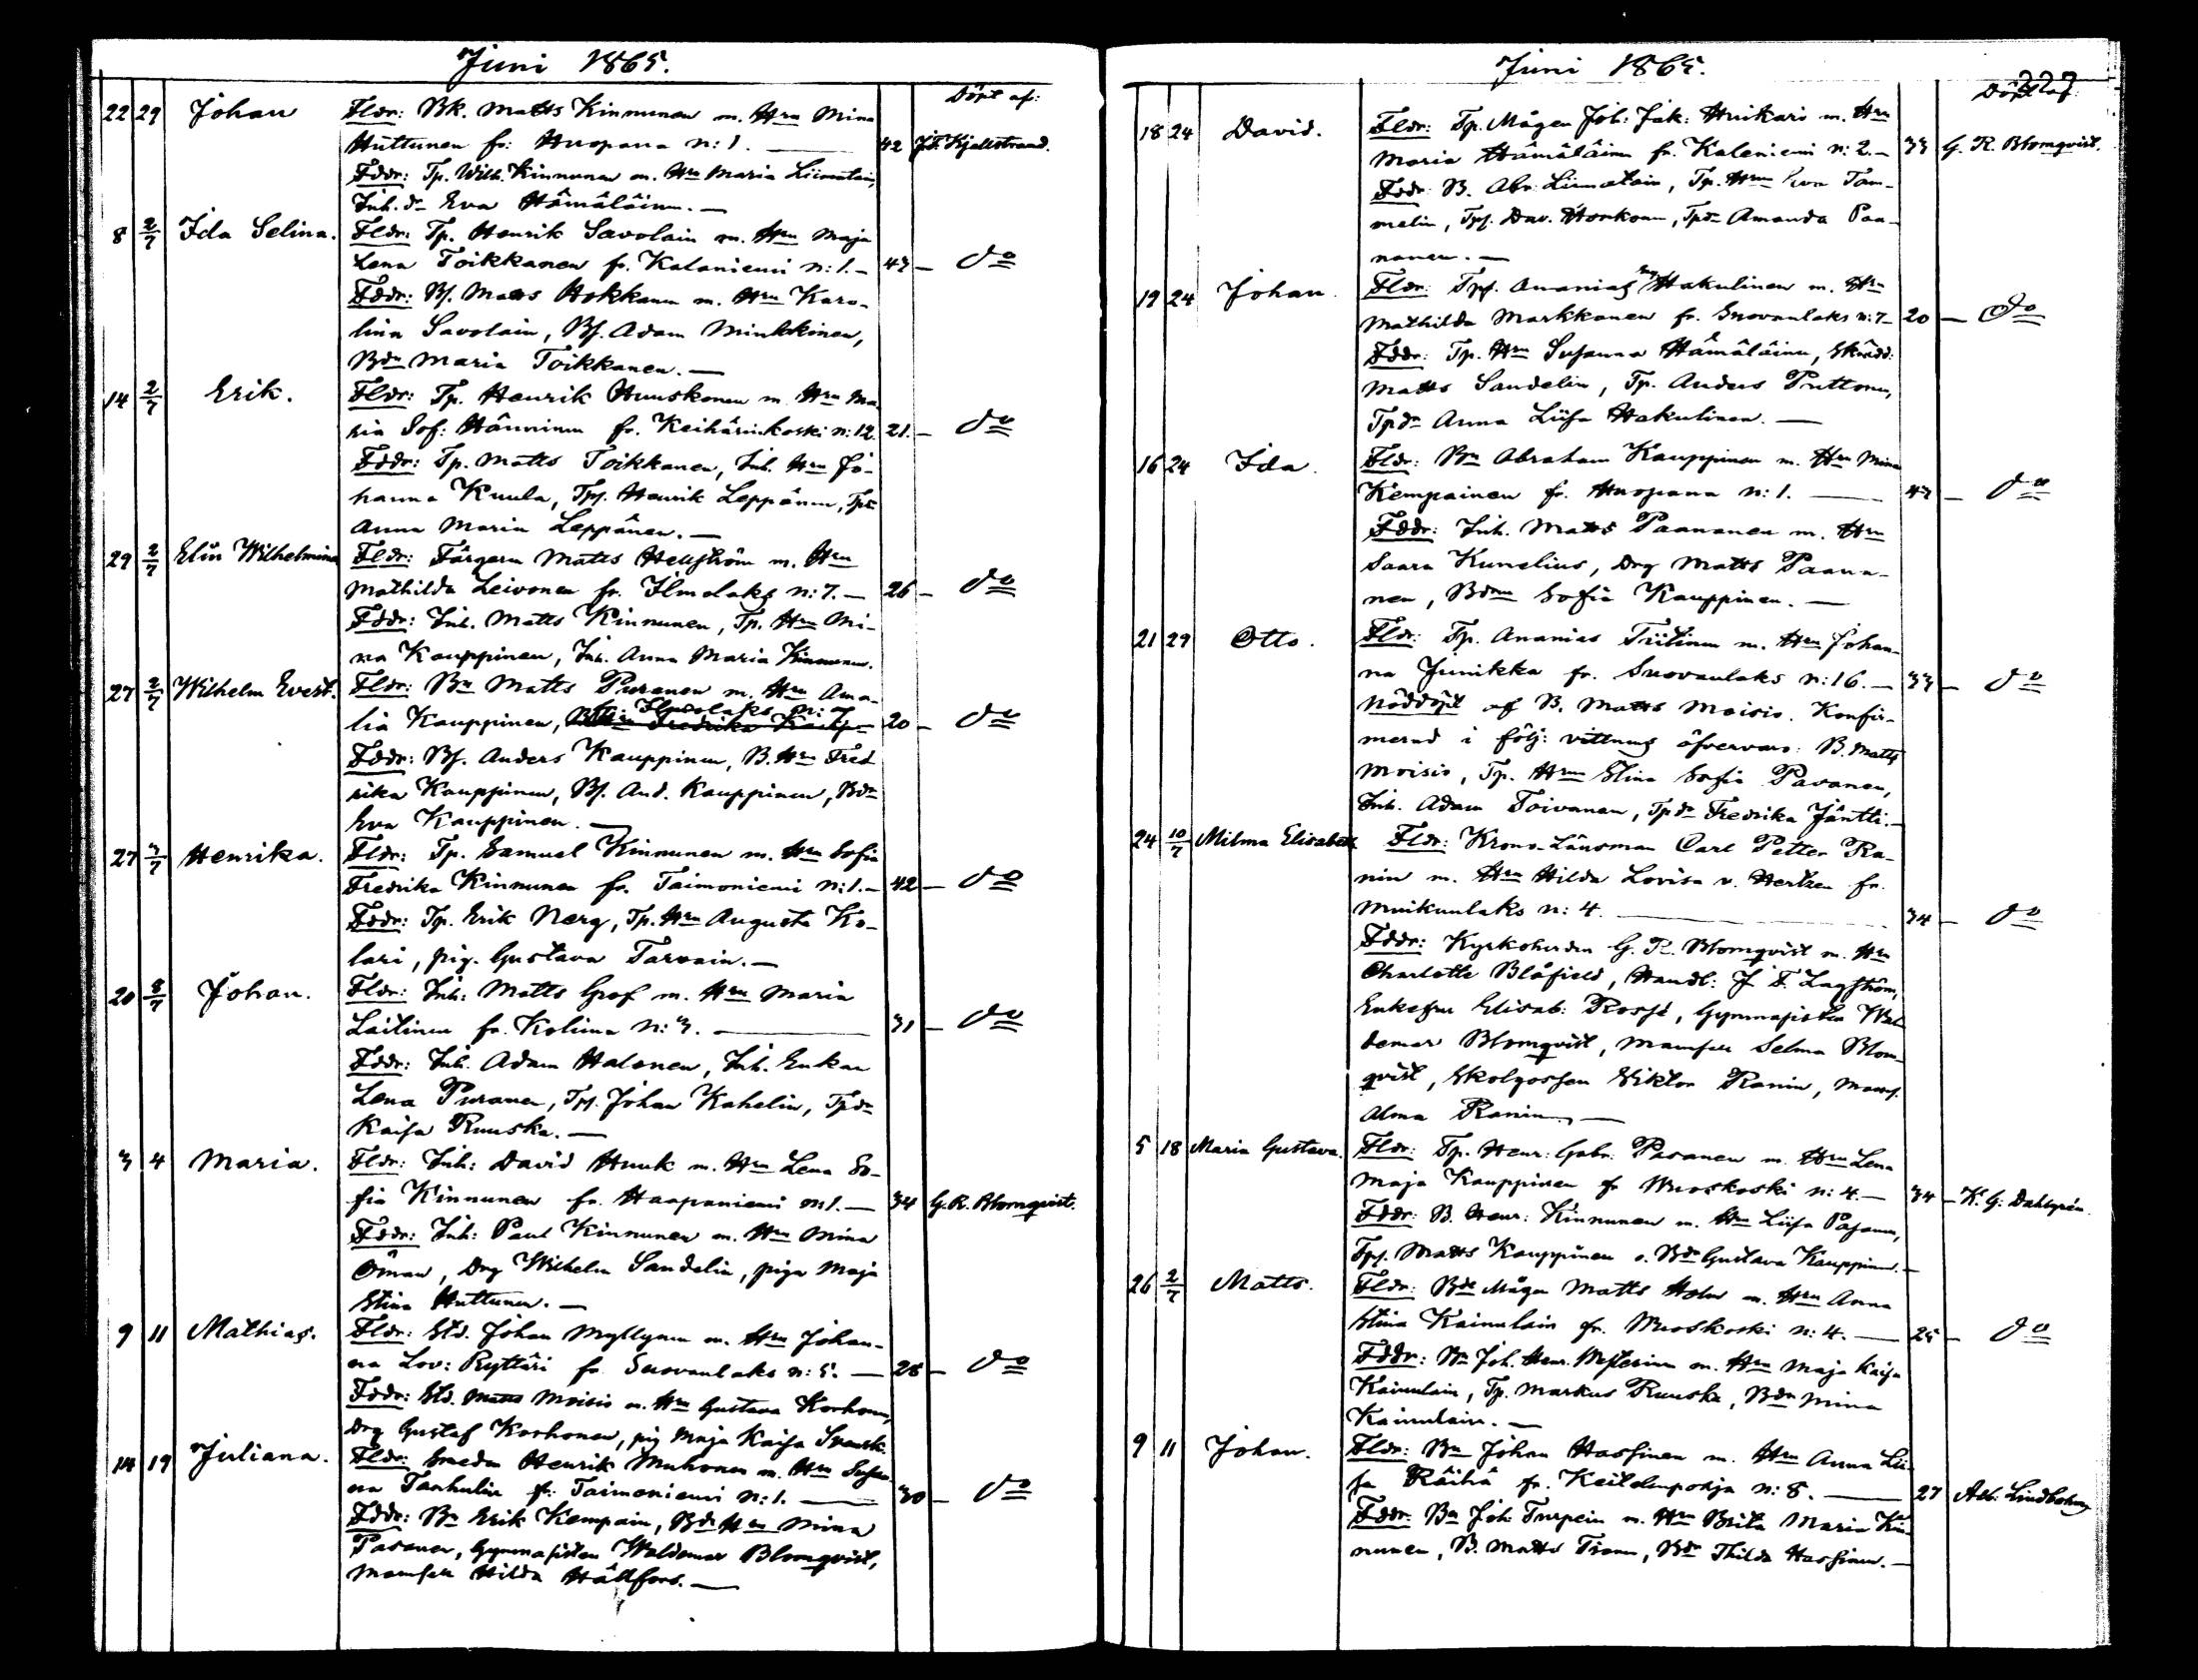 Juni 1865.
Döpt af:
22 29 Johan Fldr: Bk. Matts Kinnunen m. Hru Mina
Huttunen fr: Huopana n:1. — 42 Joh. Kjellstrand.
Fddr: Tp. Wilh. Kinnunen m. Hru Maria Liimatain,
Inh. dr Eva Hämäläinen. —
8 2/7 Ida Selina. Fldr: Tp. Henrik Savolain m. Hru Maja
Lena Toikkanen fr. Kalaniemi n:1. — 43 — do
Fddr: Bs. Matts Hokkanen m. Hru Karo-
lina Savolain, Bs. Adam Minkkinen,
Bdr Maria Toikkanen. —
14 2/7 Erik. Fldr: Tp. Henrik Huuskonen m. Hru Ma-
ria Sof: Hänninen fr. Keihärinkoski n:12. 21. — do
Fddr: Tp. Matts Toikkanen, Inh. Hru Jo-
hanna Kuula, Tps. Henrik Leppänen, Tpdr
Anna Maria Leppänen. —
29 2/7 Elin Wilhelmina Fldr: Färgern Matts Hellström m. Hru
Mathilda Leivonen fr. Ilmolaks n:7. — 26 — do
Fddr: Inh. Matts Kinnunen, Tp. Hru Mi-
na Kauppinen, Inh. Anna Maria Kinnunen.
27 2/7 Wilhelm Evert. Fldr: Bn Matts Puranen m. Hru Ama-
lia Kauppinen, fr. Ilmolaks n: 20 — do
Fddr: Bs. Anders Kauppinen, B. Hru Fred
rika Kauppinen, Bs. And. Kauppinen, Bdr
Eva Kauppinen. —
27 3/7 Henrika. Fldr: Tp. Samuel Kinnunen m. Hru Sofia
Fredrika Kinnunen fr. Taimoniemi n:1. — 42 — do
Fddr: Tp. Erik Narg, Tp. Hru Augusta Ko-
lari, pig. Gustava Tarvain. —
20 8/7 Johan. Fldr: Inh: Matts Graf m. Hru Maria
Laitinen fr. Kolima n:3. — 31 — do
Fddr: Inh. Adam Halonen, Inh. Enkan
Lena Puranen, Tps. Johan Kahelin, Tpdr
Kaisa Ruuska. —
3 4 Maria. Fldr: Inh: David Huuk m. Hru Lena So-
fia Kinnunen fr. Haapaniemi n:1. — 34 G. R. Blomqvist.
Fddr: Inh: Paul Kinnunen m. Hru Mina
Öman, Drg Wilhelm Sandelin, piga Maja
Stina Huttunen. —
9 11 Mathias. Fldr: Std. Johan Myllynen m. Hru Johan-
na Lov: Ryttäri fr. Suovanlaks n:5. — 28 — do
Fddr: Std. Matts Moisio m. Hru Gustava Korhonen,
Drg Gustaf Korhonen, pig Maja Kaisa
14 19 Juliana. Fldr: Smeden Henrik Muhonen m. Hru Susan-
na Tanhulin fr. Taimoniemi n:1. — 30 — do
Fddr: Bn Erik Kempain, Bde Hru Mina
Pasanen, Gymnasisten Waldemar Blomqvist,
Mamsell Hilda Hällfors. —
Juni 1865. 227
Döpt af:
18 24 David. Fldr: Tp. Mågen Joh: Jak: Huikari m. Hru
Maria Hämäläinen fr. Kalaniemi n:2. — 33 G. R. Blomqvist.
Fddr: B. Abr. Liimatain, Tp. Hru Eva Tam-
melin, Tps. Dav. Honkonen, Tpdr Amanda Paa-
nanen. —
19 24 Johan. Fldr: Tps. Ananias Hakulinen m. Hru
Mathilda Markkanen fr. Suovanlaks n:7 — 20 — do
Fddr: Tp. Hru Susanna Hämäläinen, Skrädd:
Matts Sandelin, Tp. Anders Puttonen,
Tpdr Anna Liisa Hakulinen. —
16 24 Ida. Fldr: Bn Abraham Kauppinen m. Hru Mina
Kempainen fr. Huopana n:1. — 43 — do
Fddr: Inh. Matts Paananen m. Hru
Saara Kunelius, Drg Matts Paana-
nen, Bdrn Sofia Kauppinen. —
21 29 Otto. Fldr: Tp. Ananias Tiitinen m. Hru Johan-
na Junikka fr. Suovanlaks n:16. — 33 — do
Nöddöpt af B. Matts Moisio. Konfir-
merad i följ: vittnens öfvervaro: B. Matts
Moisio, Tp. Hru Stina Sofia Pavanen,
Inh. Adam Toivanen, Tpdr Fredrika Jäntti. —
24 10/7 Milma Elisabeth Fldr: Krono-Länsman Carl Petter Ra-
nin m. Hru Hilda Lovisa v. Hertzen fr.
Muikunlaks n:4. — 34 — do
Fddr: Kyrkoherden G. R. Blomqvist m. Hru
Charlotte Blåfield, Handl: J. F. Lagström,
Enkefru Elisab: Rosse, Gymnasisten Wal-
demar Blomqvist, Mamsell Selma Blom-
qvist, Skolgossen Viktor Ranin, Mams.
Alma Ranin. —
5 18 Maria Gustava. Fldr: Tp. Henr: Gabr: Pasanen m. Hru Lena
Maja Kauppinen fr Wuoskoski n:4. — 34 — K. G. Dahlgrén.
Fddr: B. Henr: Kinnunen m. Hru Liisa Pasanen,
Tps. Matts Kauppinen o. Bdr Gustava Kauppinen. —
26 2/7 Matts. Fldr: Bde Mågen Matts Holm m. Hru Anna
Stina Kainulain fr. Wuoskoski n:4. — 25 — do
Fddr: Bn Joh. Henr. Westerinen m. Hru Maja Kaisa
Kainulain, Tp. Markus Ruuska, Bdr Mina
Kainulain. —
9 11 Johan. Fldr: Bn Johan Hassinen m. Hru Anna Lii-
sa Räihä fr. Keitelenpohja n:8. — 27 Alb: Lindbohm
Fddr: Bn Joh. Turpein m. Hru Brita Maria Kin-
nunen, B. Matts Tiron, Bdr Thilda Hassinen. —